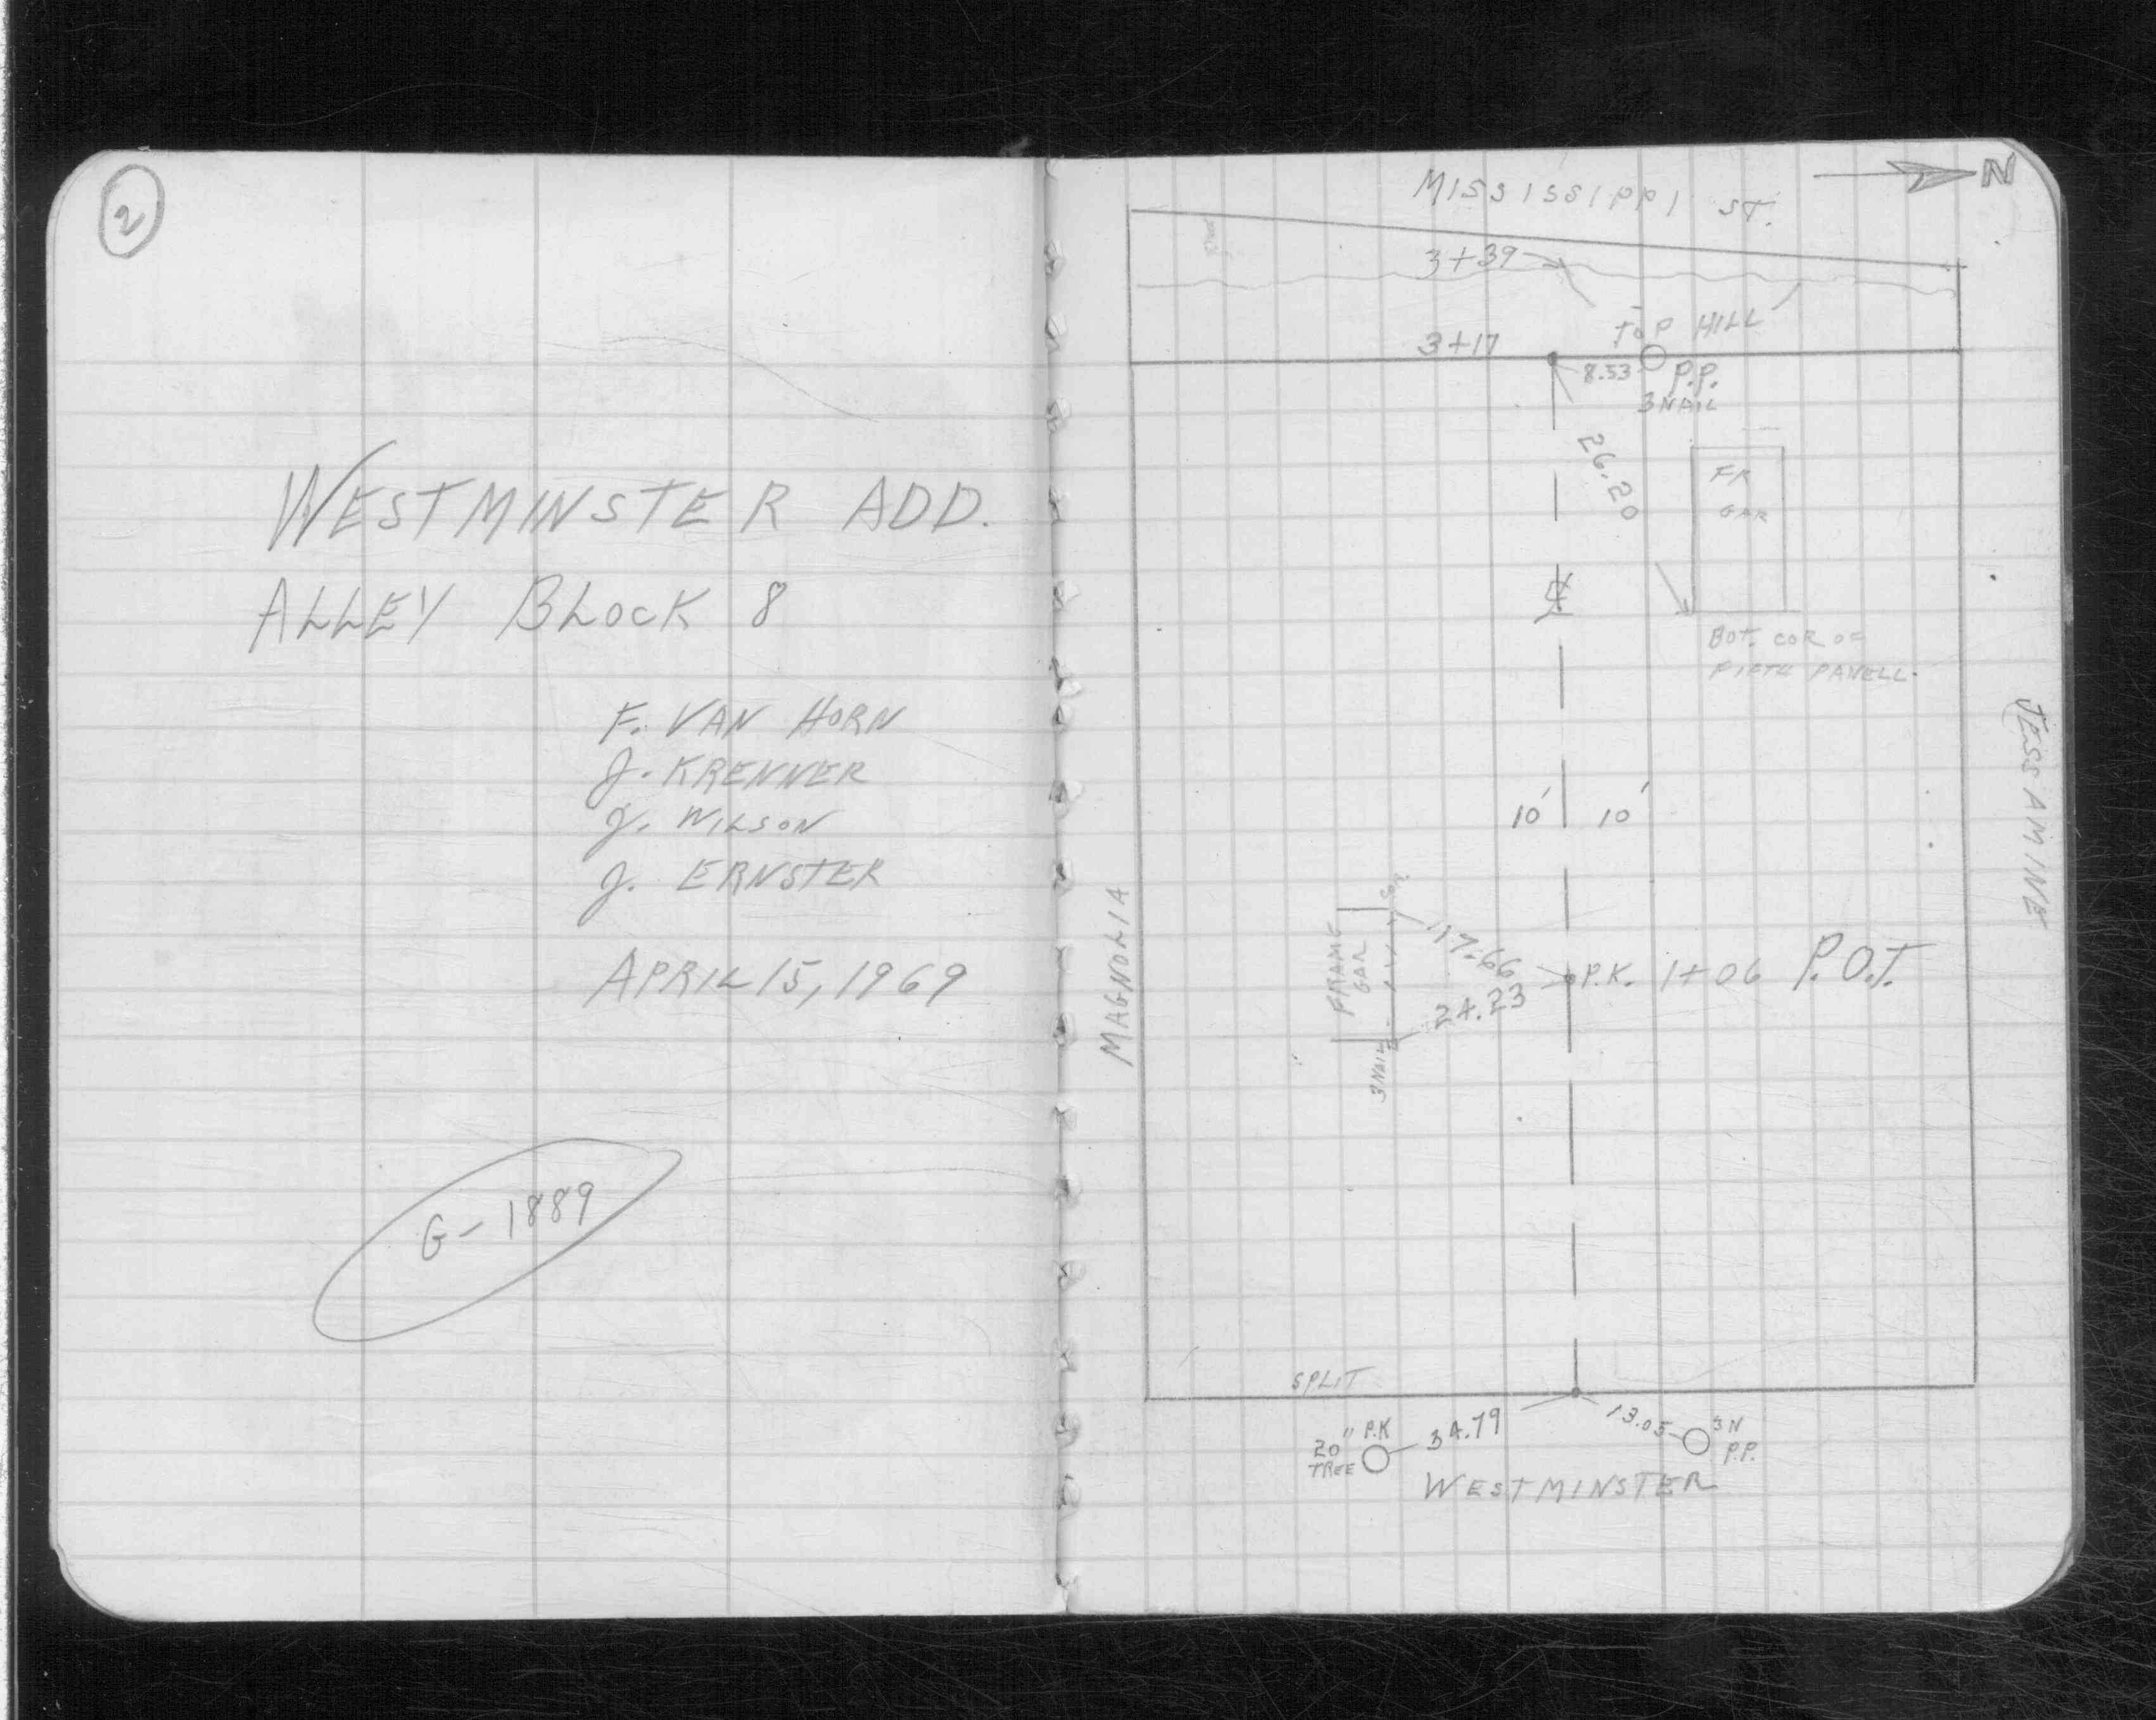 2
WESTMINSTER ADD.
ALLEY BLOCK 8
F. VAN HORN
J. KRENNER
J. WILSON
J. ERNSTER
APRIL 15, 1969
G-1889
N
MISSISSIPPI ST.
3+39
TOP HILL
3+17
8.53
P.P.
3 NAIL
26.20
FR
GAR
℄
BOT. COR OF
FIFTH PANELL.
JESSAMINE
10' 10'
MAGNOLIA
COR
FRAME
GAR
17.66
P.K. 1+06 P.O.T.
24.23
3 NAIL
SPLIT
20" P.K
TREE
34.79
13.05
3N
P.P.
WESTMINSTER